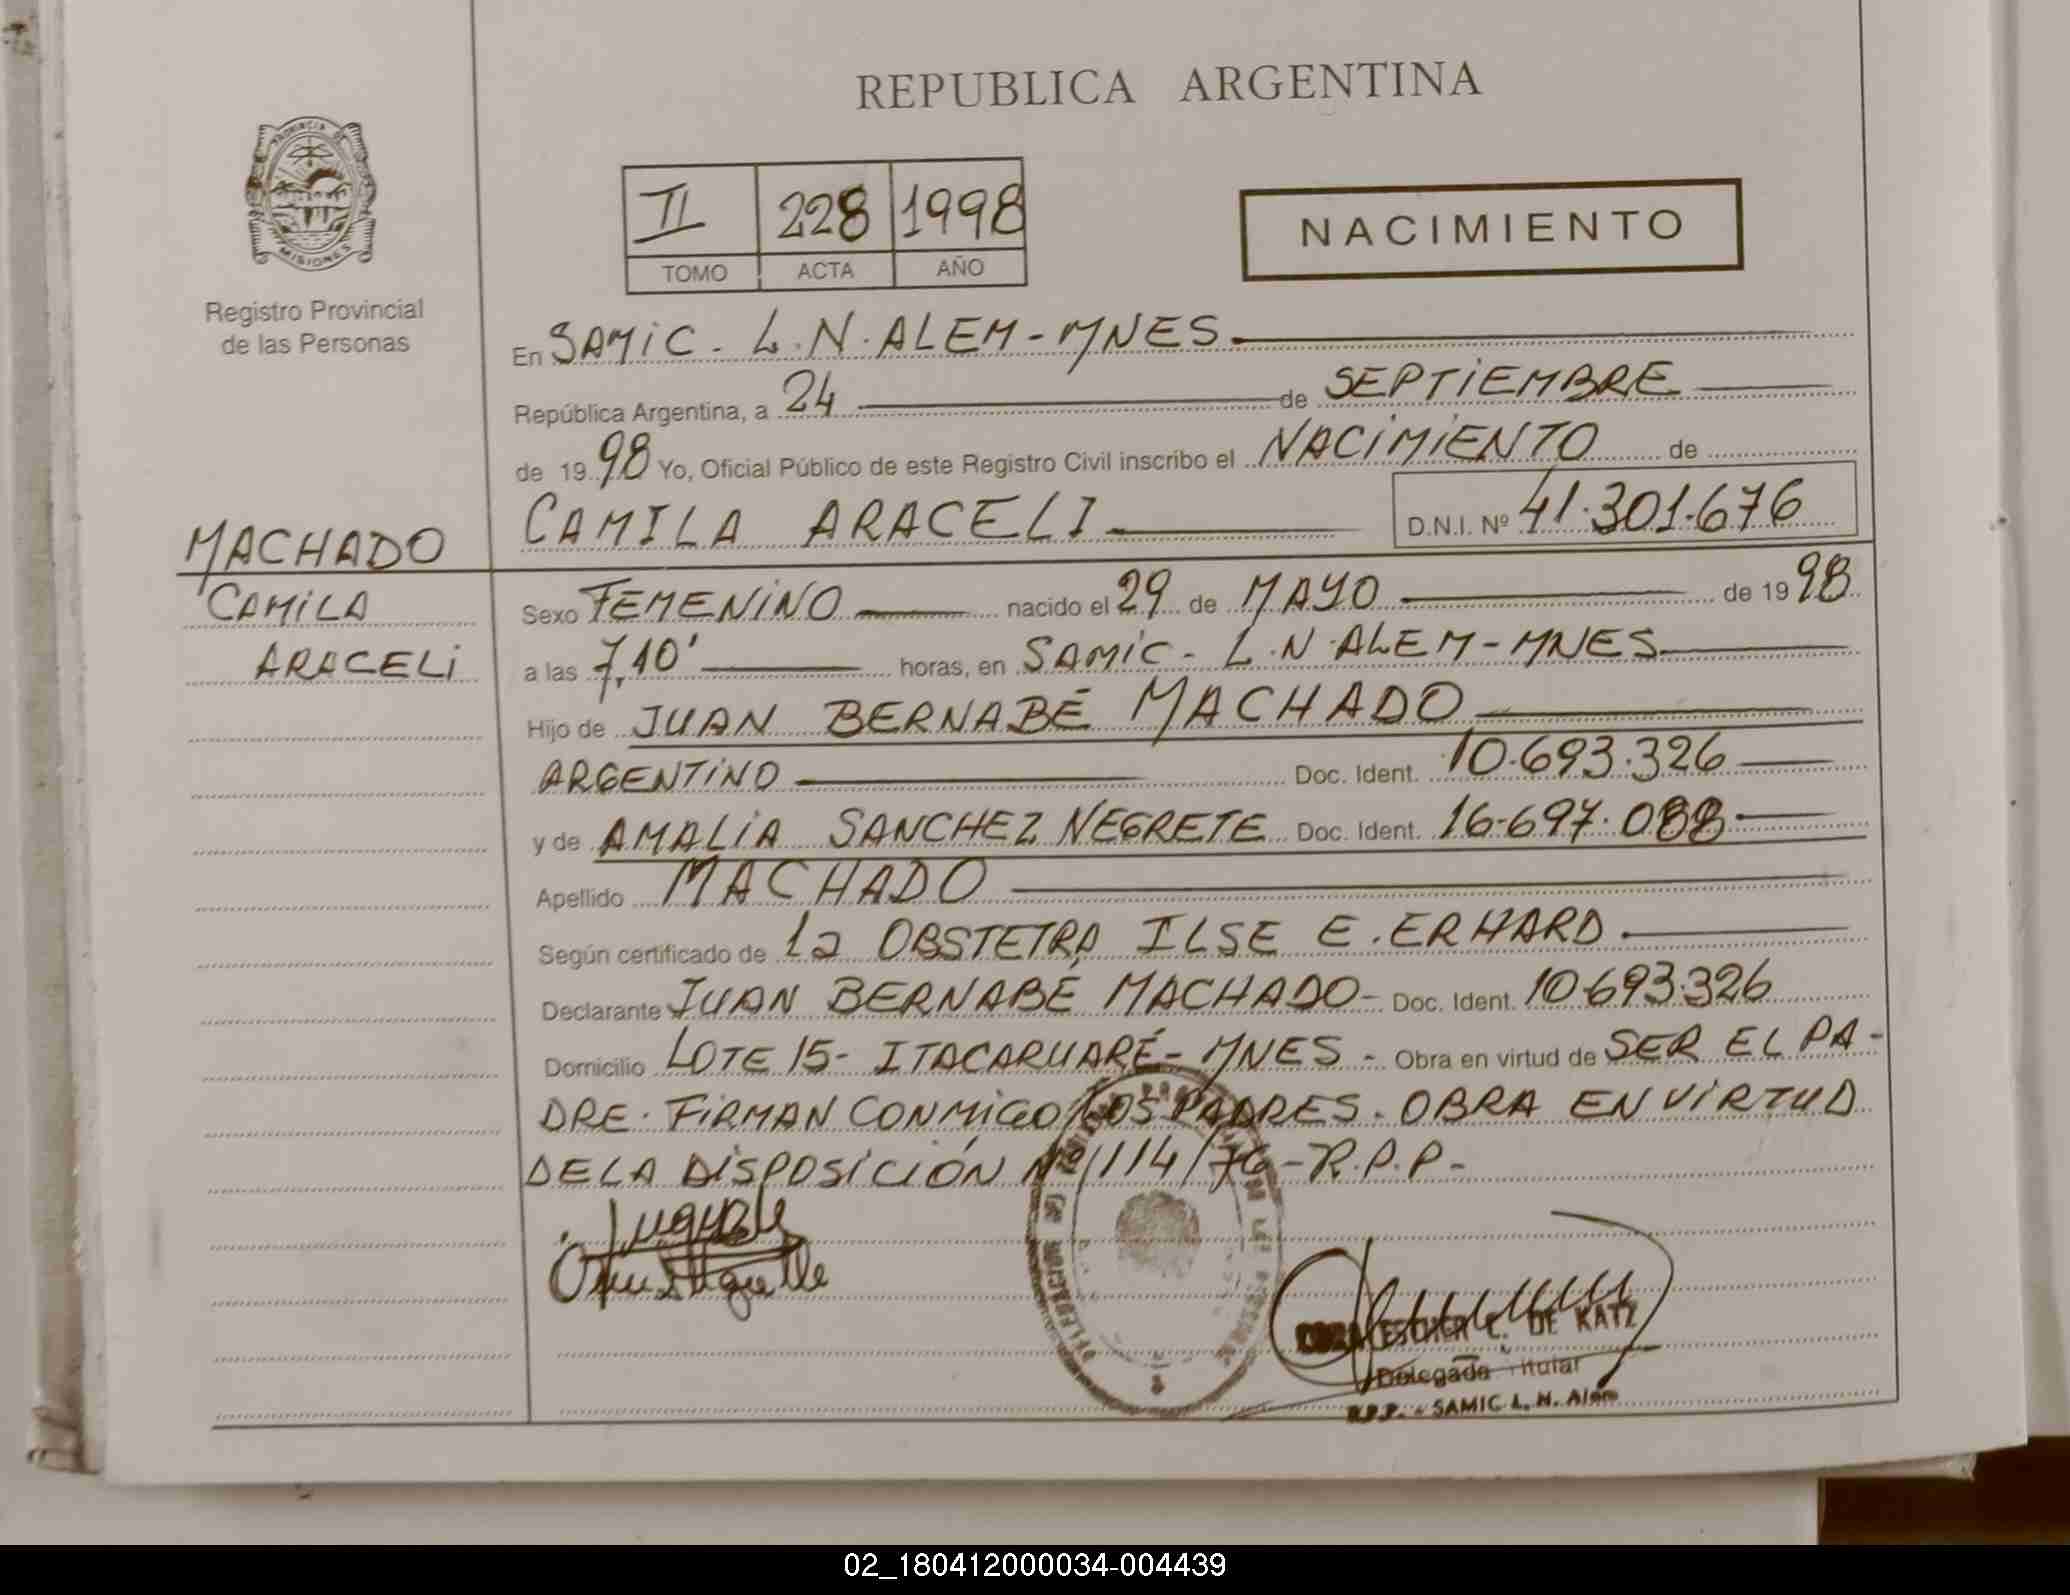 REPUBLICA ARGENTINA
PROVINCIA DE
MISIONES
Registro Provincial
de las Personas
II 228 1998
TOMO ACTA AÑO
NACIMIENTO
En SAMIC - L.N. ALEM - MNES
República Argentina, a 24 de SEPTIEMBRE
de 1998 Yo, Oficial Público de este Registro Civil inscribo el NACIMIENTO de
CAMILA ARACELI D.N.I. Nº 41.301.676
MACHADO
CAMILA
ARACELI
Sexo FEMENINO nacido el 29 de MAYO de 1998
a las 7,10' horas, en SAMIC - L.N. ALEM - MNES
Hijo de JUAN BERNABÉ MACHADO
ARGENTINO Doc. Ident. 10.693.326
y de AMALIA SANCHEZ NEGRETE Doc. Ident. 16.697.088
Apellido MACHADO
Según certificado de la OBSTETRA, ILSE E. ERHARD
Declarante JUAN BERNABÉ MACHADO - Doc. Ident. 10.693.326
Domicilio LOTE 15 - ITACARUARÉ - MNES - Obra en virtud de SER EL PA-
DRE. FIRMAN CONMIGO LOS PADRES. OBRA EN VIRTUD
DE LA DISPOSICIÓN Nº 114/76 - R.P.P -
ESTHER C. DE KATZ
Delegada Titular
R.P.P. - SAMIC L. N. Alem
02_180412000034-004439